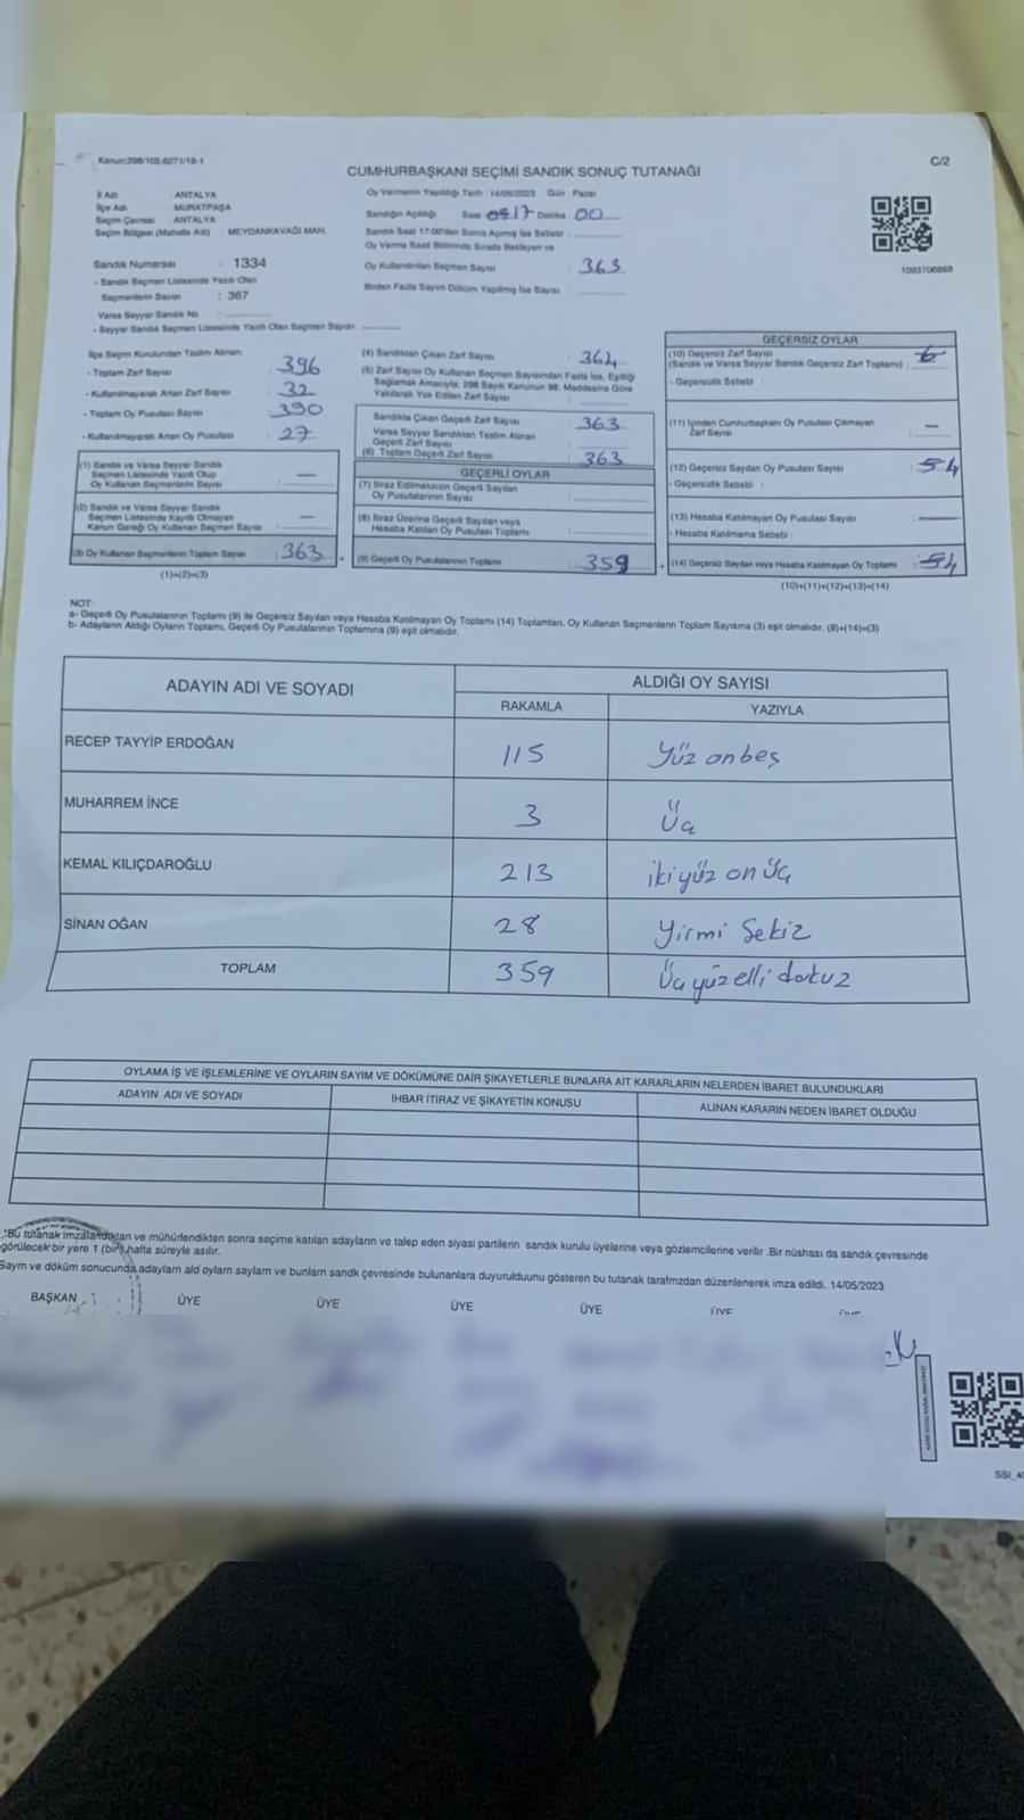 Kanun:298/105-6271/19-1
C/2
CUMHURBAŞKANI SEÇİMİ SANDIK SONUÇ TUTANAĞI
İl Adı ANTALYA
İlçe Adı MURATPAŞA
Seçim Çevresi ANTALYA
Seçim Bölgesi (Mahalle Adı) MEYDANKAVAĞI MAH.
Sandık Numarası : 1334
- Sandık Seçmen Listesinde Yazılı Olan
Seçmenlerin Sayısı : 367
Varsa Seyyar Sandık No
- Seyyar Sandık Seçmen Listesinde Yazılı Olan Seçmen Sayısı
Oy Vermenin Yapıldığı Tarih : 14/05/2023 Gün : Pazar
Sandığın Açıldığı Saat 17 Dakika 00
Sandık Saat 17:00'den Sonra Açılmış İse Sebebi
Oy Verme Saati Bitiminde Sırada Bekleyen ve
Oy Kullandırılan Seçmen Sayısı 363
Birden Fazla Sayım Döküm Yapılmış İse Sayısı
İlçe Seçim Kurulundan Teslim Alınan
- Toplam Zarf Sayısı 396
- Kullanılmayarak Artan Zarf Sayısı 32
- Toplam Oy Pusulası Sayısı 390
- Kullanılmayarak Artan Oy Pusulası 27
(1) Sandık ve Varsa Seyyar Sandık
Seçmen Listesinde Yazılı Olup
Oy Kullanan Seçmenlerin Sayısı —
(2) Sandık ve Varsa Seyyar Sandık
Seçmen Listesinde Kayıtlı Olmayan
Kanun Gereği Oy Kullanan Seçmen Sayısı —
(3) Oy Kullanan Seçmenlerin Toplam Sayısı : 363
(1)+(2)=(3)
(4) Sandıktan Çıkan Zarf Sayısı 364
(5) Zarf Sayısı Oy Kullanan Seçmen Sayısından Fazla İse, Eşitliği
Sağlamak Amacıyla, 298 Sayılı Kanunun 98. Maddesine Göre
Yakılarak Yok Edilen Zarf Sayısı
Sandıkta Çıkan Geçerli Zarf Sayısı 363
Varsa Seyyar Sandıktan Teslim Alınan
Geçerli Zarf Sayısı
(6) Toplam Geçerli Zarf Sayısı 363
GEÇERLİ OYLAR
(7) İtiraz Edilmeksizin Geçerli Sayılan
Oy Pusulalarının Sayısı
(8) İtiraz Üzerine Geçerli Sayılan veya
Hesaba Katılan Oy Pusulası Toplamı
(9) Geçerli Oy Pusulalarının Toplamı 359
GEÇERSİZ OYLAR
(10) Geçersiz Zarf Sayısı
(Sandık ve Varsa Seyyar Sandık Geçersiz Zarf Toplamı)
- Geçersizlik Sebebi :
(11) İçinden Cumhurbaşkanı Oy Pusulası Çıkmayan
Zarf Sayısı —
(12) Geçersiz Sayılan Oy Pusulası Sayısı 4
- Geçersizlik Sebebi :
(13) Hesaba Katılmayan Oy Pusulası Sayısı —
- Hesaba Katılmama Sebebi :
(14) Geçersiz Sayılan veya Hesaba Katılmayan Oy Toplamı : 4
(10)+(11)+(12)+(13)=(14)
NOT
a- Geçerli Oy Pusulalarının Toplamı (9) ile Geçersiz Sayılan veya Hesaba Katılmayan Oy Toplamı (14) Toplamları, Oy Kullanan Seçmenlerin Toplam Sayısına (3) eşit olmalıdır. (9)+(14)=(3)
b- Adayların Aldığı Oyların Toplamı, Geçerli Oy Pusulalarının Toplamına (9) eşit olmalıdır.
ADAYIN ADI VE SOYADI
ALDIĞI OY SAYISI
RAKAMLA YAZIYLA
RECEP TAYYİP ERDOĞAN 115 Yüz onbeş
MUHARREM İNCE 3 Üç
KEMAL KILIÇDAROĞLU 213 ikiyüz on üç
SİNAN OĞAN 28 Yirmi Sekiz
TOPLAM 359 Üçyüz elli dokuz
OYLAMA İŞ VE İŞLEMLERİNE VE OYLARIN SAYIM VE DÖKÜMÜNE DAİR ŞİKAYETLERLE BUNLARA AİT KARARLARIN NELERDEN İBARET BULUNDUKLARI
ADAYIN ADI VE SOYADI İHBAR İTİRAZ VE ŞİKAYETİN KONUSU ALINAN KARARIN NEDEN İBARET OLDUĞU
"Bu tutanak imzalandıktan ve mühürlendikten sonra seçime katılan adayların ve talep eden siyasi partilerin sandık kurulu üyelerine veya gözlemcilerine verilir. Bir nüshası da sandık çevresinde
görülecek bir yere 1 (bir) hafta süreyle asılır.
Sayım ve döküm sonucunda adayların aldı oyların sayları ve bunların sandık çevresinde bulunanlara duyurulduunu gösteren bu tutanak tarafmzdan düzenlenerek imza edildi. 14/05/2023
BAŞKAN ÜYE ÜYE ÜYE ÜYE ÜYE ÜYE